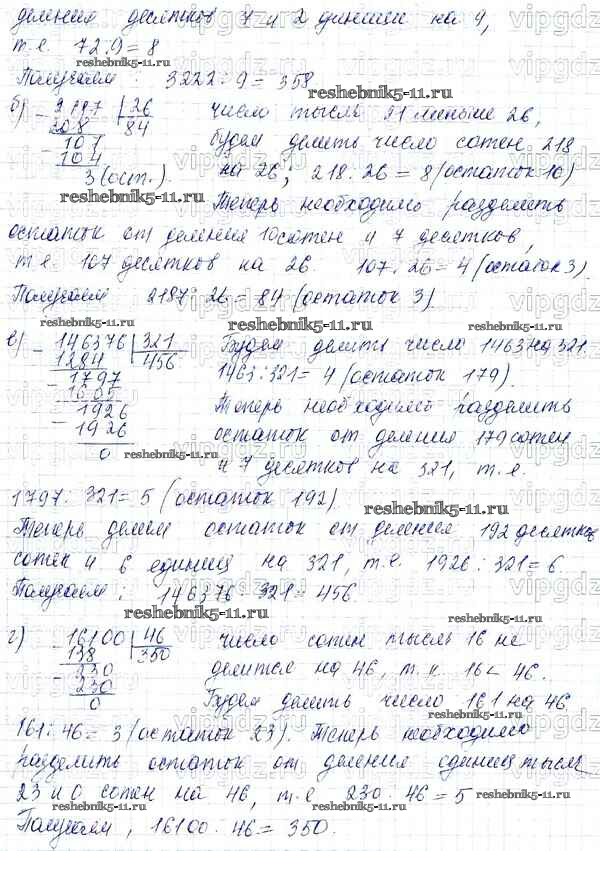 деления десятков 7 и 2 единиц на 9,
т.е. 72:9=8
reshebnik5-11.ru
Получаем: 3222:9=358
б) 2187 | 26
208 | 84
107
104
3 (ост.)
число тысяч 21 меньше 26,
будем делить число сотен 218
на 26; 218:26=8 (остаток 10)
reshebnik5-11.ru
Теперь необходимо разделить
остаток от деления 10 сотен и 7 десятков,
т.е. 107 десятков на 26. 107:26=4 (остаток 3).
Получаем 2187:26=84 (остаток 3)
reshebnik5-11.ru
в) 146376 | 321
1284 | 456
1797
1605
1926
1926
0
Будем делить число 1463 на 321.
1463:321=4 (остаток 179).
Теперь необходимо разделить
остаток от деления 179 сотен
и 7 десятков на 321, т.е.
reshebnik5-11.ru
1797:321=5 (остаток 192).
reshebnik5-11.ru
Теперь делим остаток от деления 192 десятков
сотен и 6 единиц на 321, т.е. 1926:321=6.
Получаем: 146376:321=456
reshebnik5-11.ru
г) 16100 | 46
138 | 350
230
230
0
число сотен тысяч 16 не
делится на 46, т.к. 16<46.
Будем делить число 161 на 46.
reshebnik5-11.ru
161:46=3 (остаток 23). Теперь необходимо
разделить остаток от деления единиц тысяч
23 и 0 сотен на 46, т.е. 230:46=5
reshebnik5-11.ru
Получаем, 16100:46=350.
reshebnik5-11.ru
vipgdz.ru